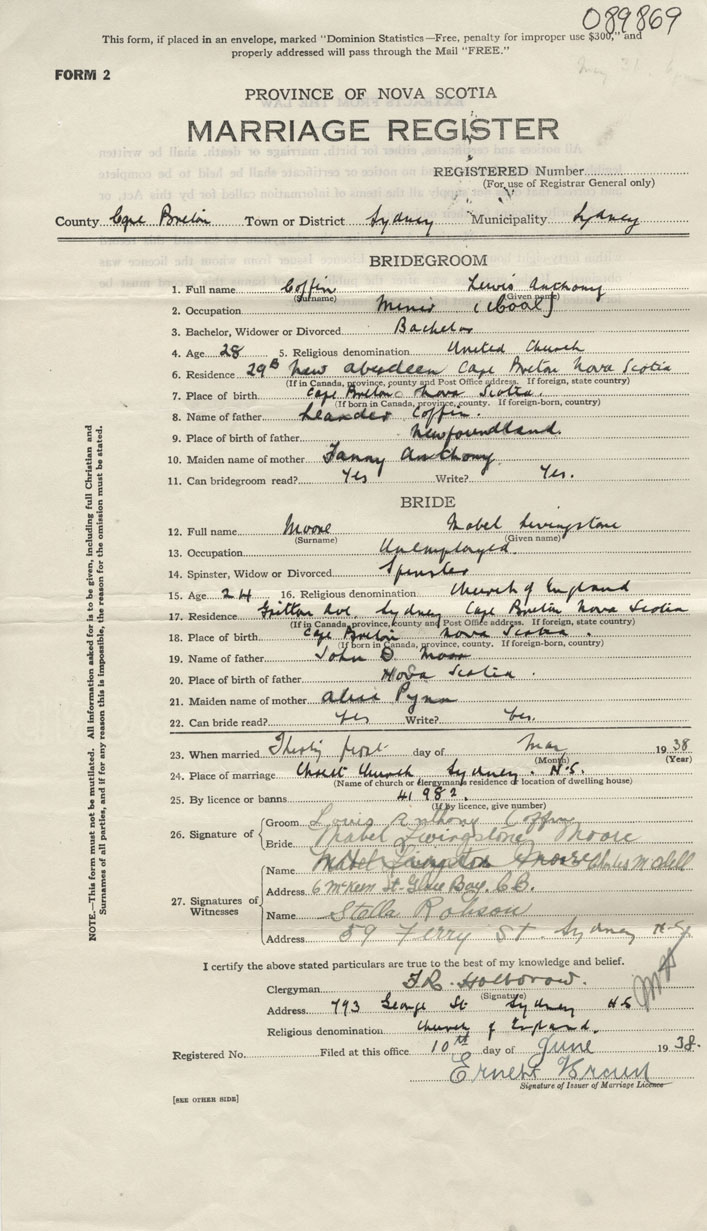 089869
This form, if placed in an envelope, marked "Dominion Statistics—Free, penalty for improper use $300," and
properly addressed will pass through the Mail "FREE."
FORM 2
PROVINCE OF NOVA SCOTIA
MARRIAGE REGISTER
REGISTERED Number
(For use of Registrar General only)
County Cape Breton Town or District Sydney Municipality Sydney
BRIDEGROOM
1. Full name Coffin Lewis Anthony
(Surname) (Given name)
2. Occupation Miner (Coal)
3. Bachelor, Widower or Divorced Bachelor
4. Age 28 5. Religious denomination United Church
6. Residence 29B New Aberdeen Cape Breton Nova Scotia
(If in Canada, province, county and Post Office address. If foreign, state country)
7. Place of birth Cape Breton Nova Scotia.
(If born in Canada, province, county. If foreign-born, country)
8. Name of father Leander Coffin.
9. Place of birth of father Newfoundland.
10. Maiden name of mother Fanny Anthony
11. Can bridegroom read? Yes Write? Yes.
BRIDE
12. Full name Moore Mabel Livingstone
(Surname) (Given name)
13. Occupation Unemployed.
14. Spinster, Widow or Divorced Spinster
15. Age 24 16. Religious denomination Church of England
17. Residence Ave, Sydney Cape Breton Nova Scotia
(If in Canada, province, county and Post Office address. If foreign, state country)
18. Place of birth Cape Breton Nova Scotia.
(If born in Canada, province, county. If foreign-born, country)
19. Name of father John Moore
20. Place of birth of father Nova Scotia.
21. Maiden name of mother Alice Pynn
22. Can bride read? Yes Write? Yes.
23. When married Thirty first day of May 1938
(Month) (Year)
24. Place of marriage Christ Church Sydney. N.S.
(Name of church or clergyman's residence or location of dwelling house)
25. By licence or banns 41982.
(If by licence, give number)
26. Signature of Groom Lewis Anthony Coffin
Bride Mabel Livingstone Moore
27. Signatures of Witnesses
Name Mabel Livingstone Moore Charles
Address 6 McKeen St. Glace Bay. C.B.
Name Stella Robson
Address 59 Ferry St. Sydney N.S.
I certify the above stated particulars are true to the best of my knowledge and belief.
Clergyman Holborow.
(Signature)
Address 793 George St Sydney N.S
Religious denomination Church of England.
Registered No. Filed at this office 10th day of June 1938.
Ernest
Signature of Issuer of Marriage Licence
[SEE OTHER SIDE]
NOTE.—This form must not be mutilated. All information asked for is to be given, including full Christian and
Surnames of all parties, and if for any reason this is impossible, the reason for the omission must be stated.